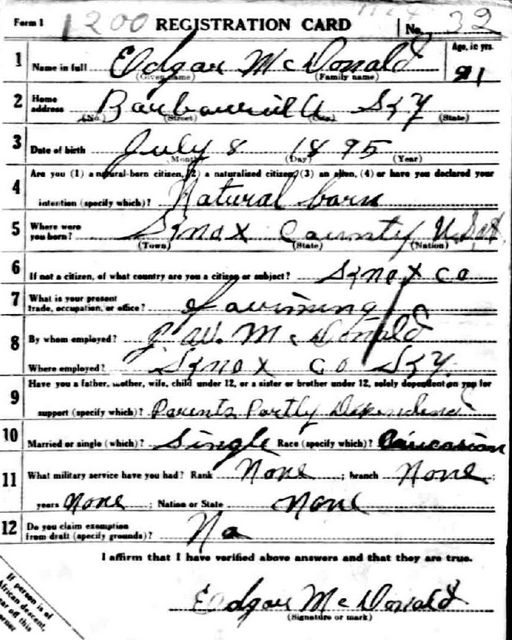 Form 1 1200 REGISTRATION CARD No. 32
1 Name in full Edgar McDonald Age, in yrs. 21
(Given name) (Family name)
2 Home address Barbourville Ky
(No.) (Street) (City) (State)
3 Date of birth July 8 1895
(Month) (Day) (Year)
4 Are you (1) a natural-born citizen, (2) a naturalized citizen, (3) an alien, (4) or have you declared your
intention (specify which)? Natural born
5 Where were you born? Knox County U.S.A.
(Town) (State) (Nation)
6 If not a citizen, of what country are you a citizen or subject? Knox Co
7 What is your present trade, occupation, or office? Farming
8 By whom employed? J. W. McDonald
Where employed? Knox Co Ky.
9 Have you a father, mother, wife, child under 12, or a sister or brother under 12, solely dependent on you for
support (specify which)? Parents Partly Dependend
10 Married or single (which)? Single Race (specify which)? Caucasian
11 What military service have you had? Rank None ; branch None
years None ; Nation or State None
12 Do you claim exemption from draft (specify grounds)? No
I affirm that I have verified above answers and that they are true.
Edgar McDonald
(Signature or mark)
If person is of
African descent,